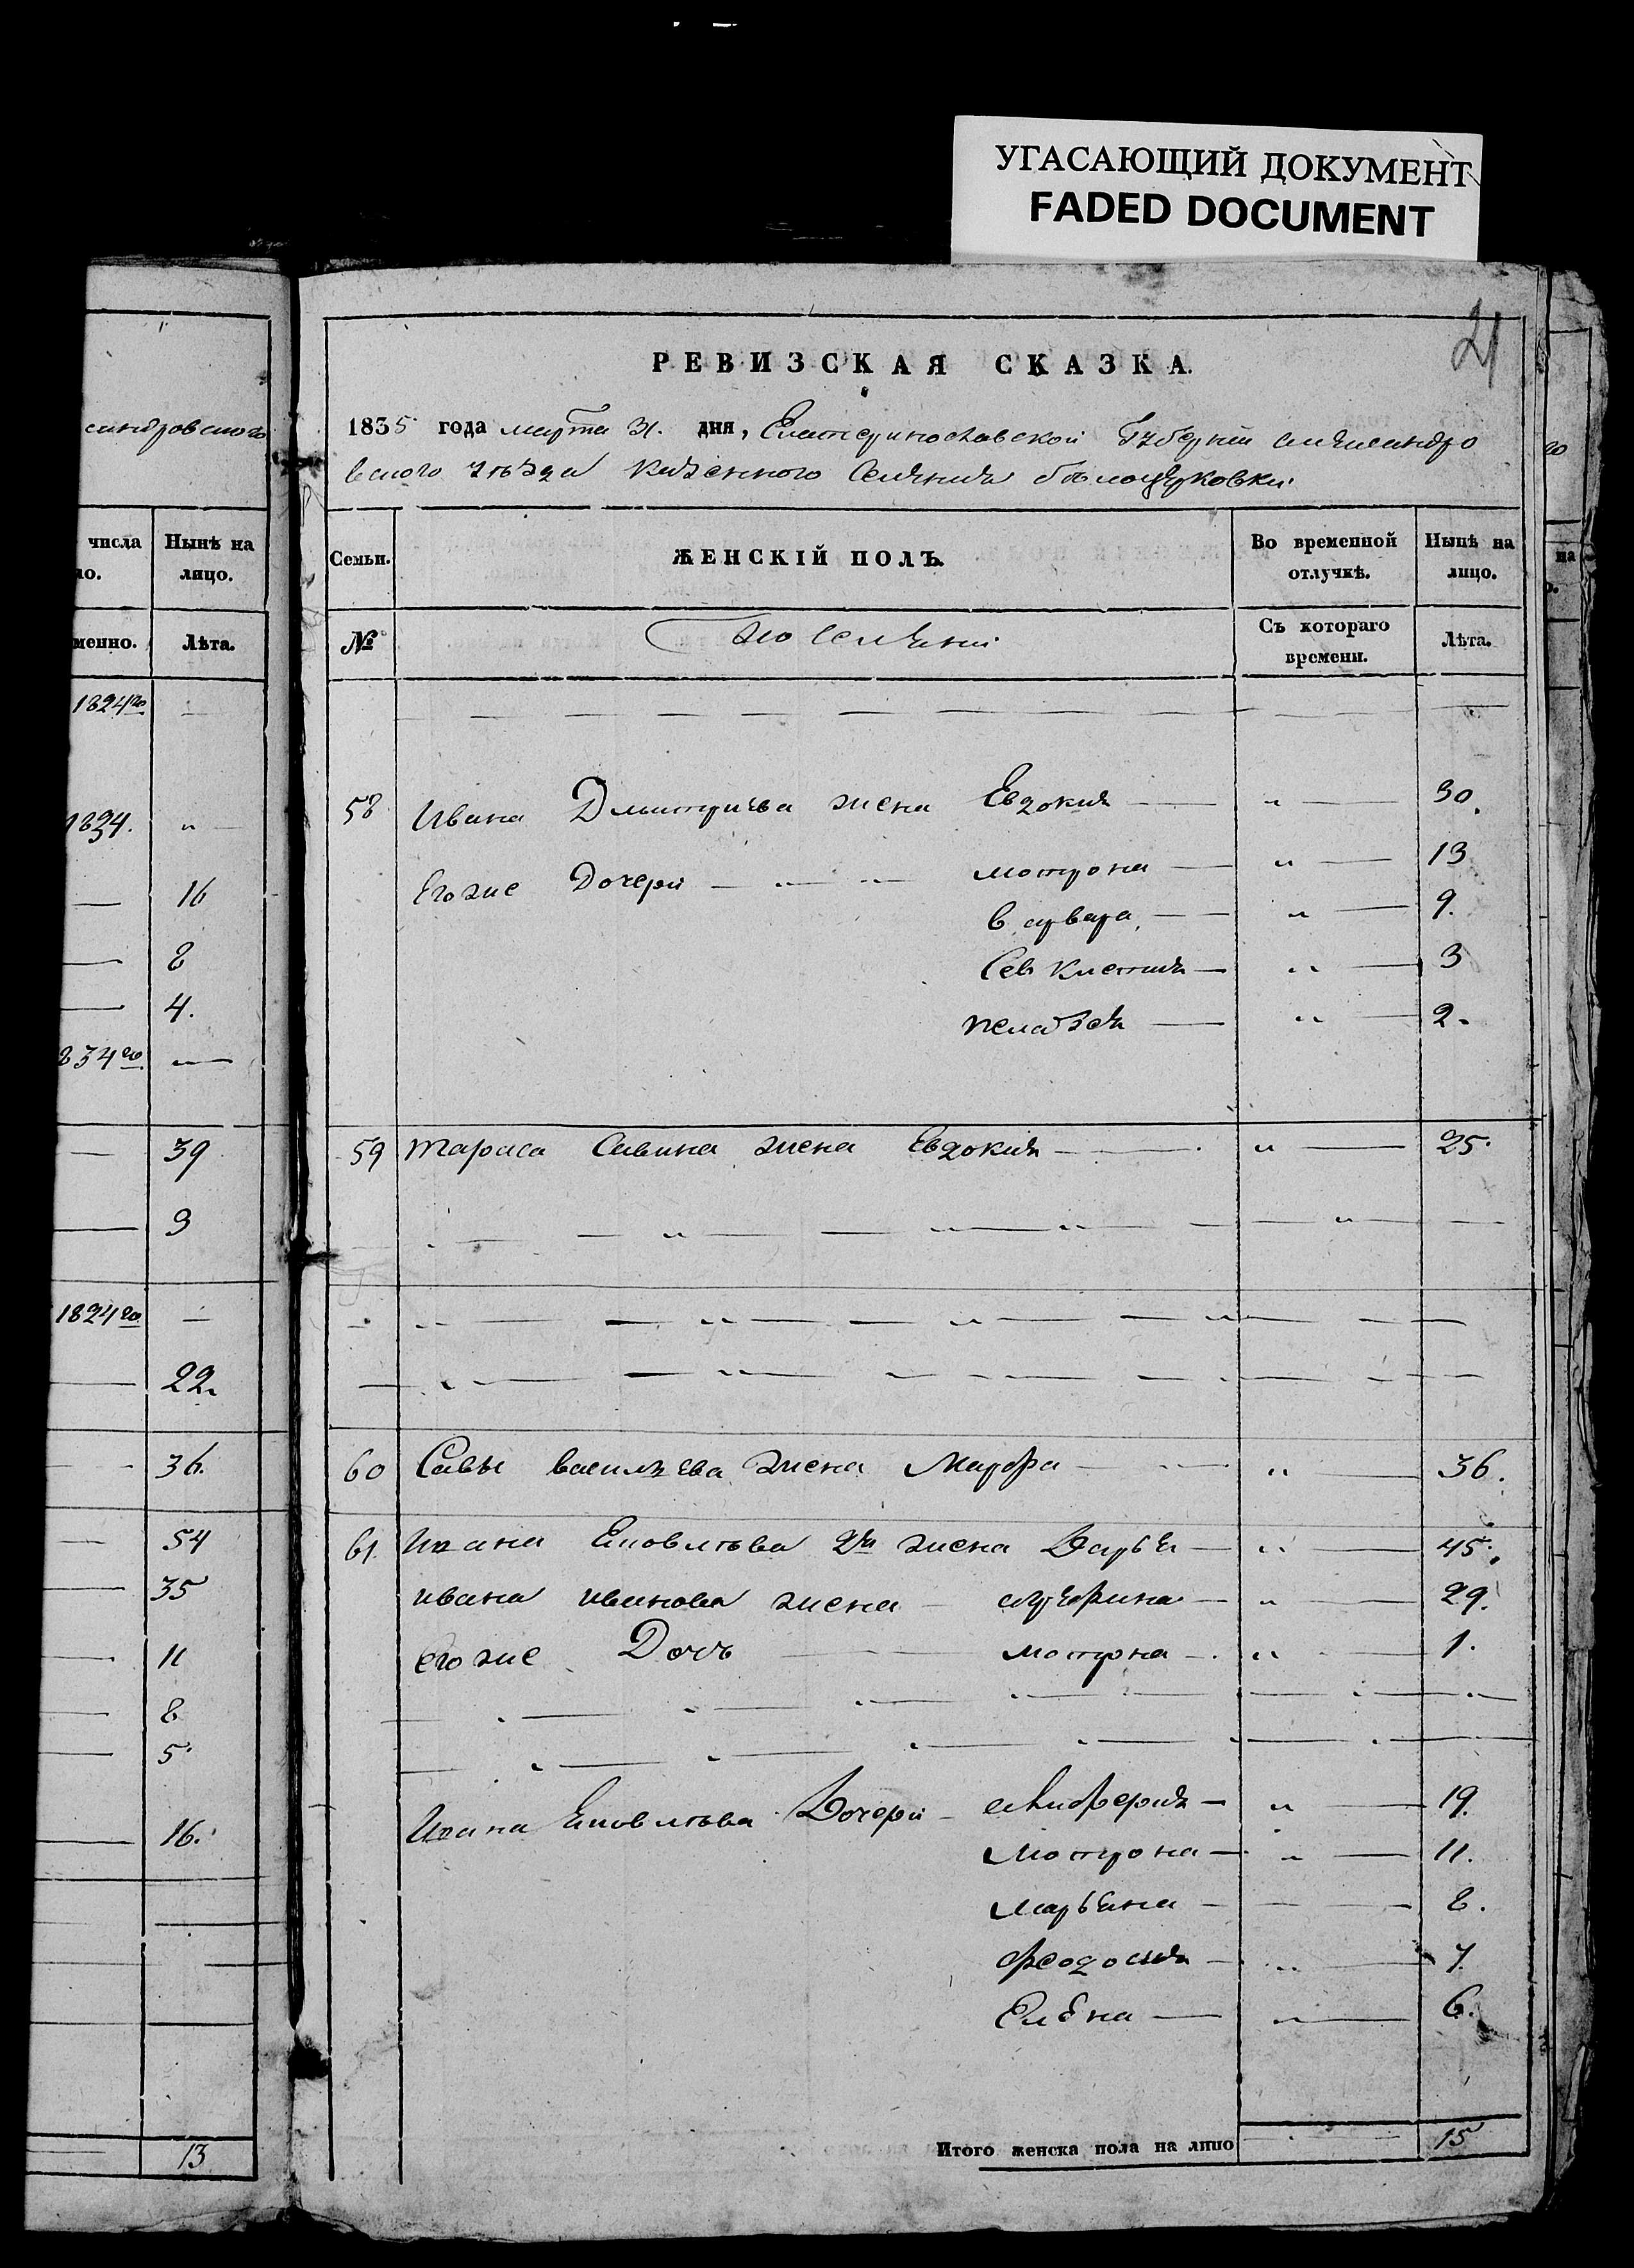 УГАСАЮЩИЙ ДОКУМЕНТ
FADED DOCUMENT
21
РЕВИЗСКАЯ СКАЗКА.
1835 года марта 31. дня, Екатеринославской Губерніи александро
вского уѣзда казенного Селенія бѣлоцерковки
Семьи. ЖЕНСКІЙ ПОЛЪ. Во временной отлучкѣ. Нынѣ на лицо.
№ Поселяни Съ котораго времени. Лѣта.
58 Ивана Дмитріева жена Евдокия — „ — 30.
Егоже Дочери — „ — „ — мотрона — „ — 13
варвара — „ — 9.
Евгения — „ — 3
пелагея — „ — 2.
59 тараса Савина жена Евдокия — „ — 25.
60 Савы васильева жена Марфа — „ — 36.
61. Ивана жена Дарья — „ — 45.
ивана иванова жена — „ — 29.
егоже Дочь мотрона — „ — 1.
Ивана Дочери — — „ — 19.
Мотрона — „ — 11.
марьяна — — 8.
феодосия — „ — 7.
Елена — „ — 6.
Итого женска пола на лицо 15
сандровского
числа Нынѣ на
ло. лицо.
менно. Лѣта.
1824го —
1834. „ —
— 16
— 8
— 4.
834го „ —
— 39
— 9
1824го —
— 22.
— 36.
— 54
— 35
— 11
— 8
— 5
— 16.
13